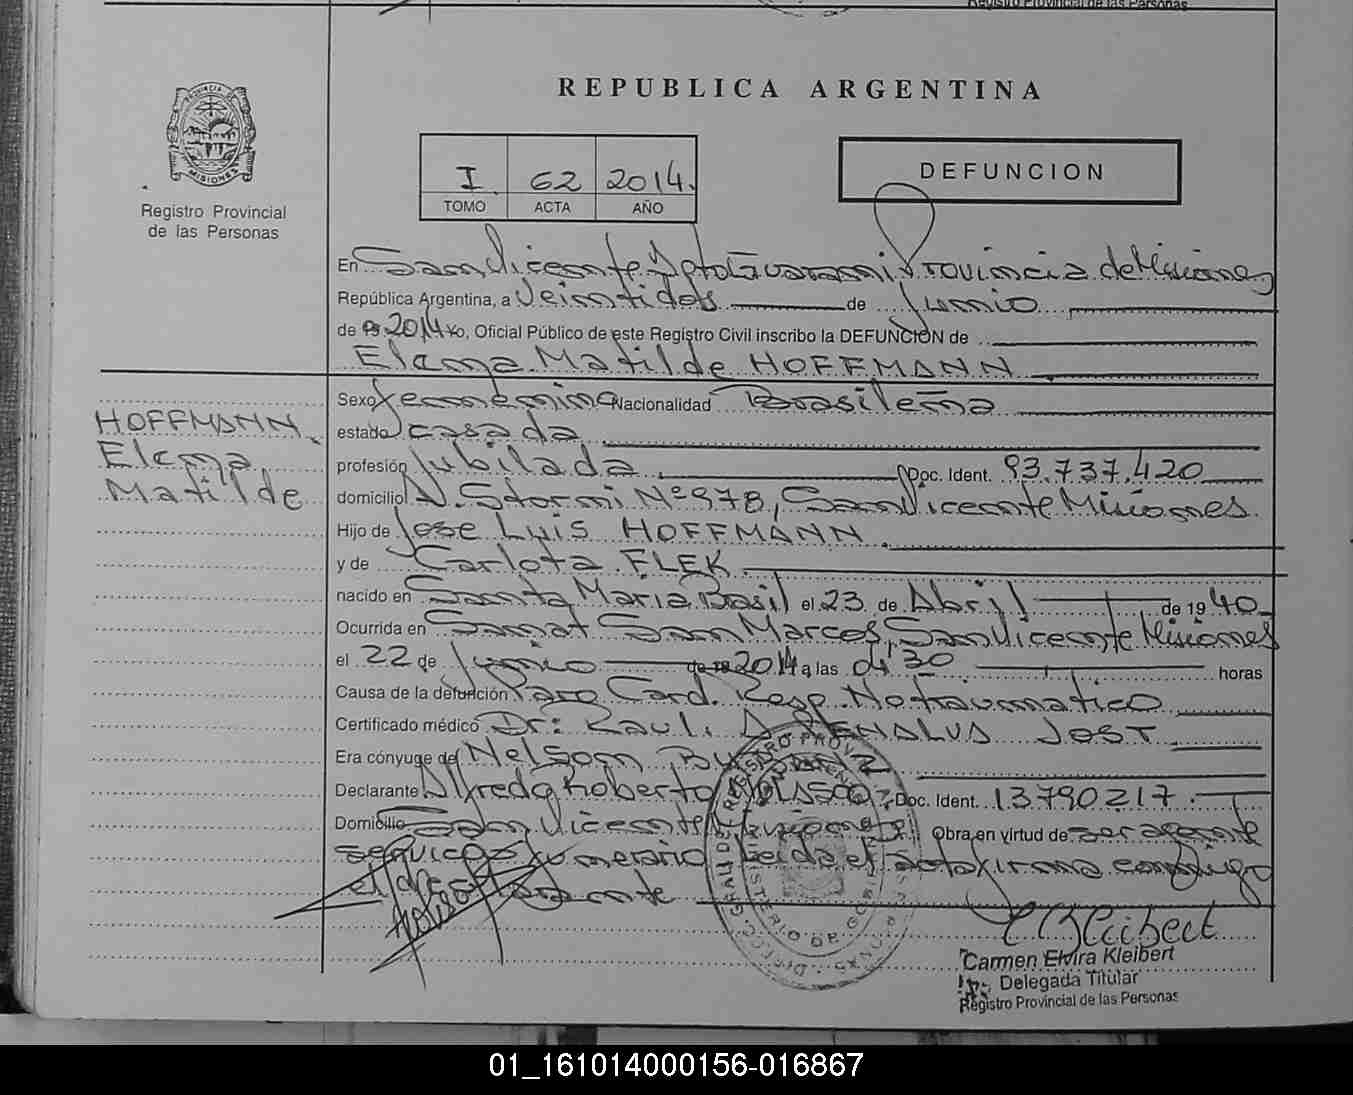 Registro Provincial de las Personas
REPUBLICA ARGENTINA
PROVINCIA DE
MISIONES
Registro Provincial
de las Personas
I 62 2014.
TOMO ACTA AÑO
DEFUNCION
En San Vicente Dpto Guarani Provincia de Misiones
República Argentina, a Veintidos de Junio
de 19 2014 Yo, Oficial Público de este Registro Civil inscribo la DEFUNCION de
Elema Matilde HOFFMANN
Sexo femenino Nacionalidad Brasileña
HOFFMANN
estado casada
Elema
profesión Jubilada Doc. Ident. 93.737.420
Matilde
domicilio N. Storni Nº 978, San Vicente Misiones
Hijo de Jose Luis HOFFMANN
y de Carlota FLEK
nacido en Santa Maria Brasil el 23 de Abril de 19 40
Ocurrida en Samat San Marcos, San Vicente Misiones
el 22 de Junio de 19 2014 a las 04'30 horas
Causa de la defunción Paro Card. Resp. No traumatico
Certificado médico Dr: Raul. A. JOST
Era cónyuge de Nelson
Declarante Alfredo Roberto Doc. Ident. 13790217.
Domicilio San Vicente Misiones Obra en virtud de ser agente
servicio funerario Leida el acta firma conmigo
el declarante
REGISTRO PROV
MINISTERIO DE GOB
Carmen Elvira Kleibert
Delegada Titular
Registro Provincial de las Personas
01_161014000156-016867